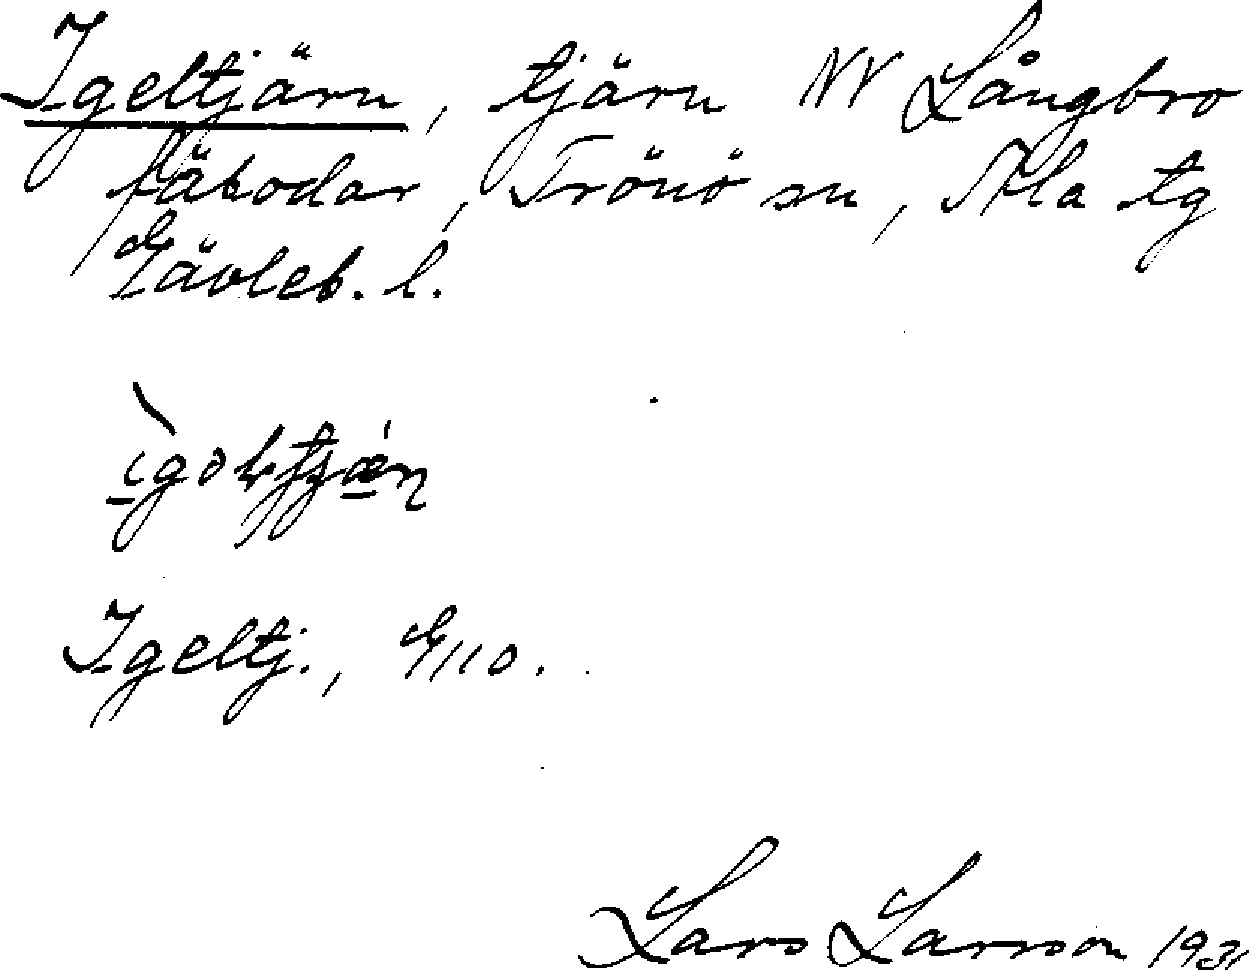 Igeltjärn, tjärn NV Långbro
fäbodar, Trönö sn, Ala tg
Gävleb. l.
Igeltj., G110.
Lars Larsson 1931